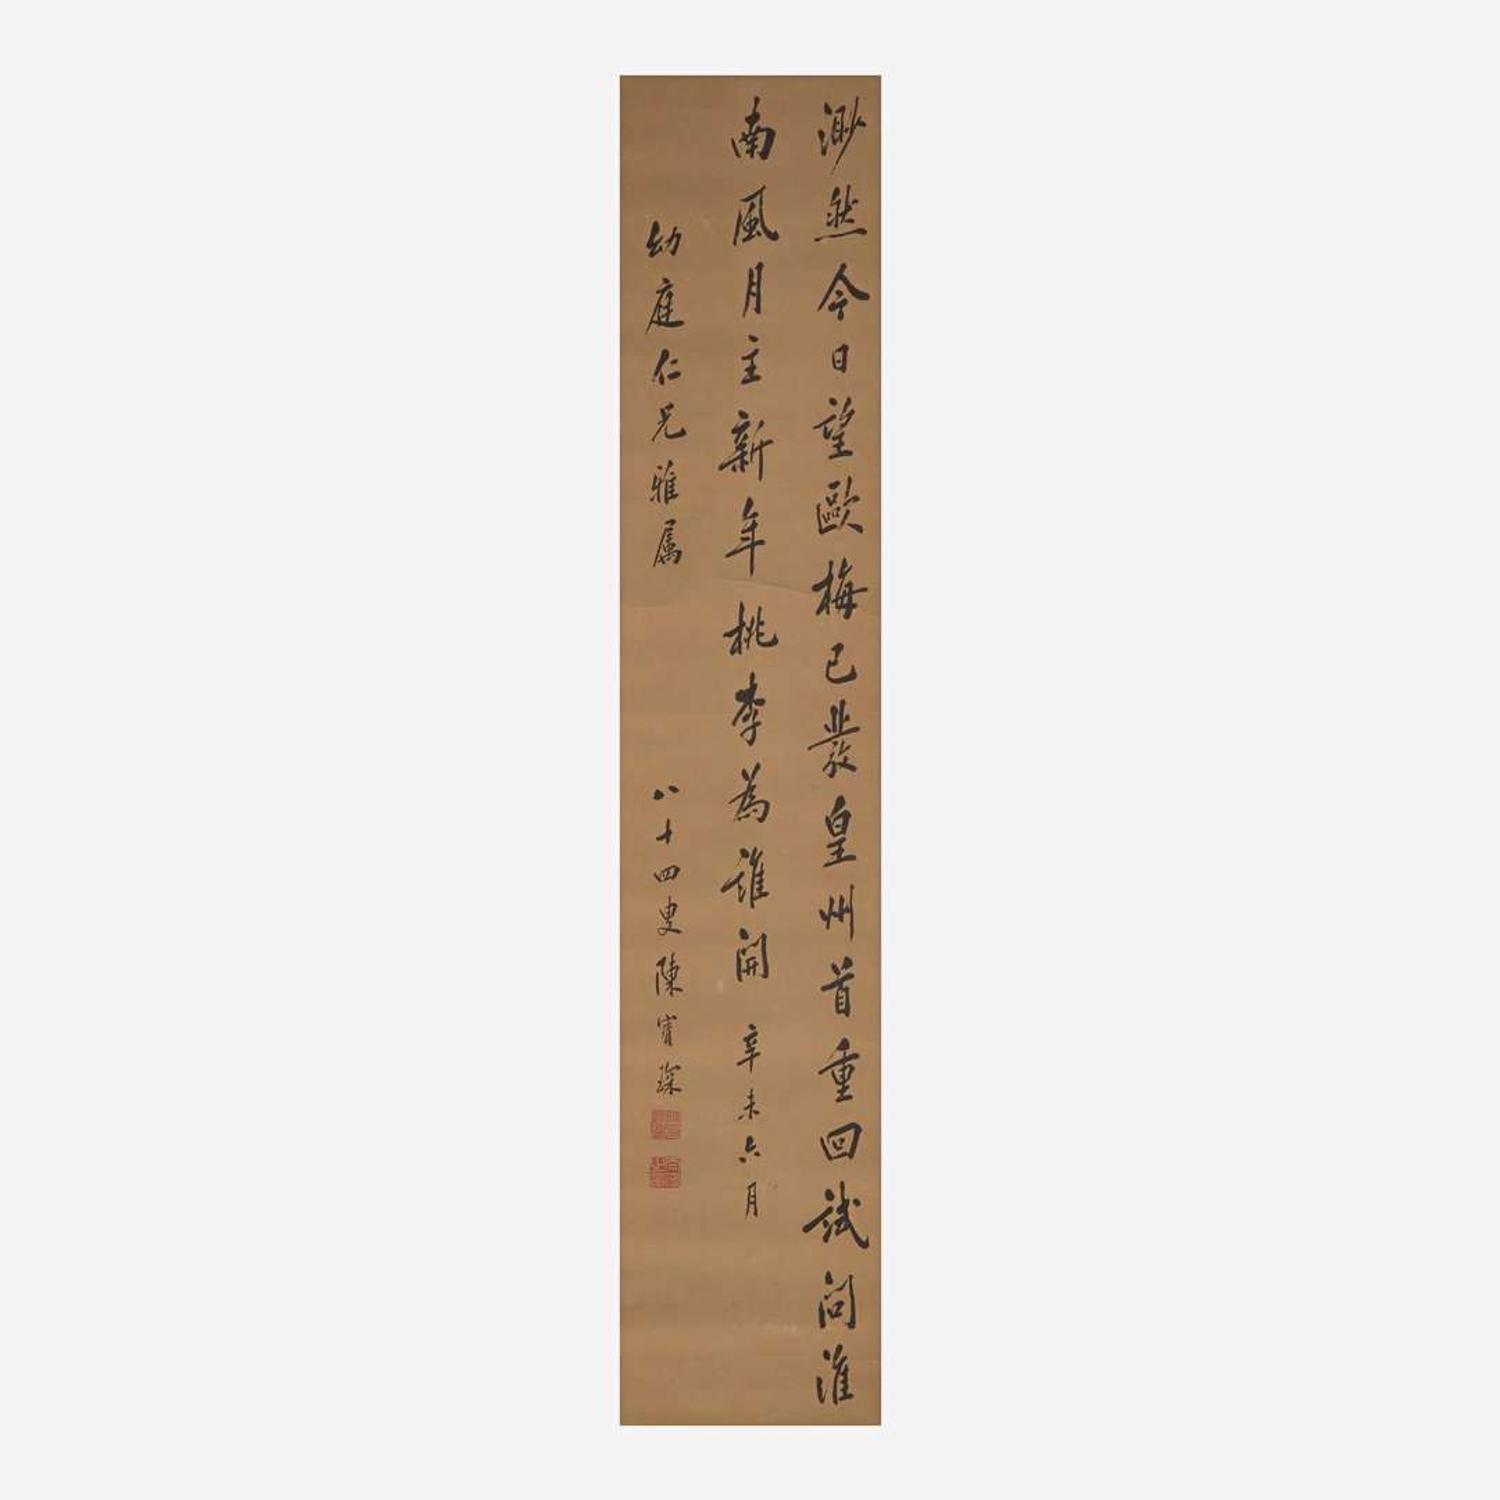 渺然今日望歐梅已發皇州首重回試問淮
南風月主新年桃李為誰開 辛未六月
幼庭仁兄雅屬 八十四叟陳寶琛